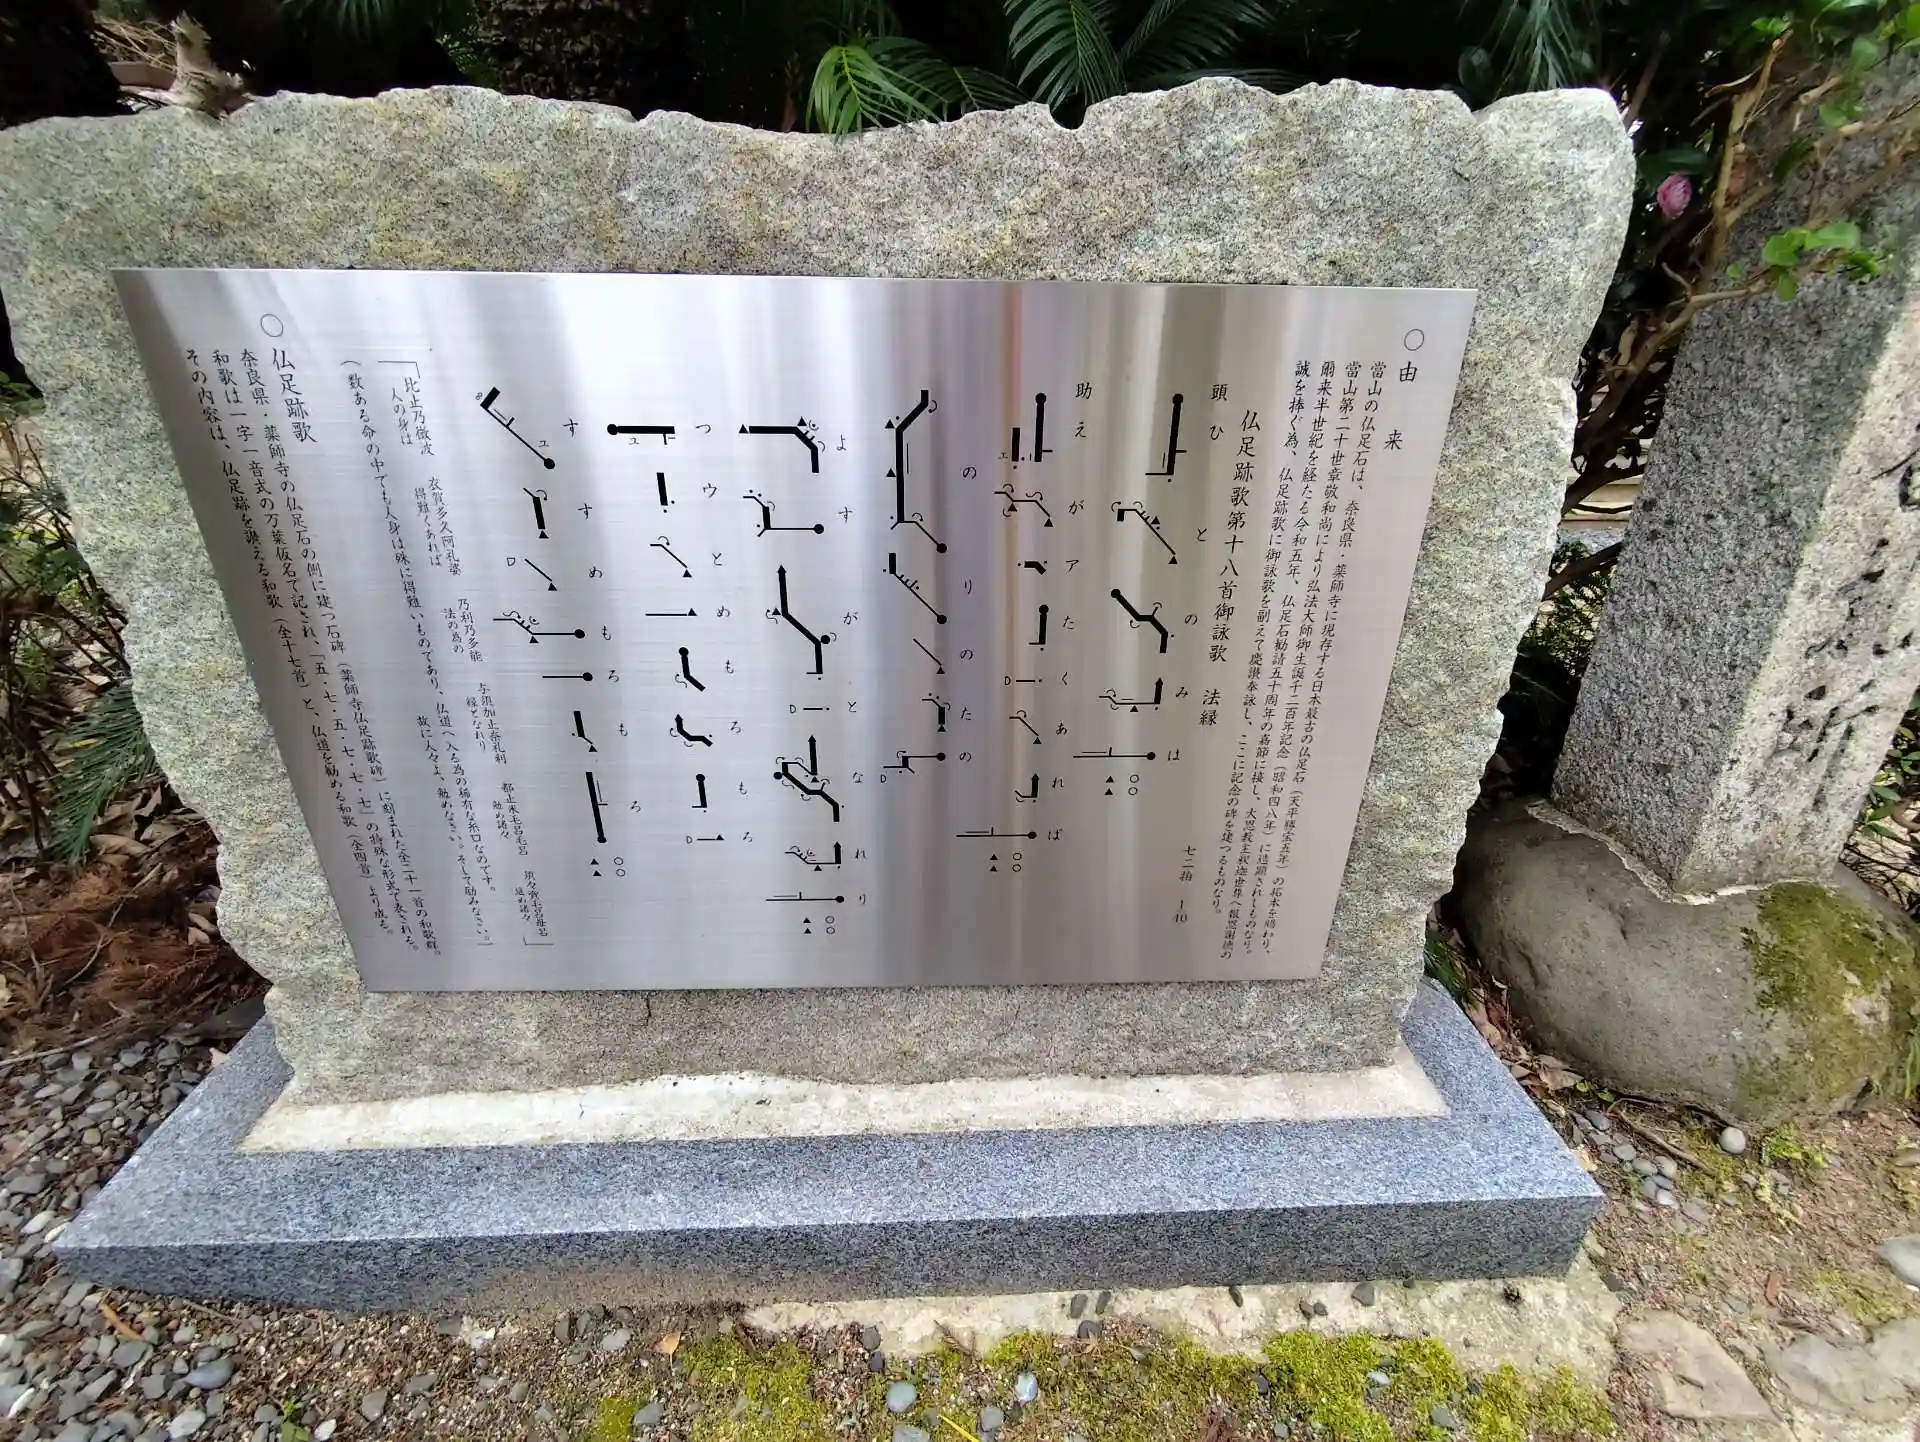 ○由来
當山の仏足石は、奈良県・薬師寺に現存する日本最古の仏足石（天平勝宝五年）の拓本を賜わり、
當山第二十世章敬和尚により弘法大師御生誕千二百年記念（昭和四八年）に造顕されしものなり。
爾来半世紀を経たる今和五年、仏足石勧請五十周年の嘉節に接し、大恩教主釈迦世尊へ報恩謝徳の
誠を捧ぐ為、仏足跡歌に御詠歌を副えて慶讃奉詠し、ここに記念の碑を建つるものなり。
仏足跡歌第十八首御詠歌 法縁
七二拍 1 40
頭 ひとのみは
助 えがアたくあれば
のりのたの
よすがとなれり
つウとめもろもろ
すすめもろもろ
「比止乃微波 衣賀多久阿礼婆 乃利乃多能 与須加止奈礼利 都止米毛呂毛呂 須々賣毛呂母呂」
人の身は 得難くあれば 法の為の 縁となれり 勉め諸々 進め諸々
（数ある命の中でも人身は殊に得難いものであり、仏道へ入る為の稀有な糸口なのです。
故に人々よ、勉めなさい。そして励みなさい。）
○仏足跡歌
奈良県・薬師寺の仏足石の側に建つ石碑（薬師寺仏足跡歌碑）に刻まれた全二十一首の和歌群。
和歌は一字一音式の万葉仮名で記され、「五・七・五・七・七・七」の特殊な形式で表される。
その内容は、仏足跡を讃える和歌（全十七首）と、仏道を勧める和歌（全四首）より成る。